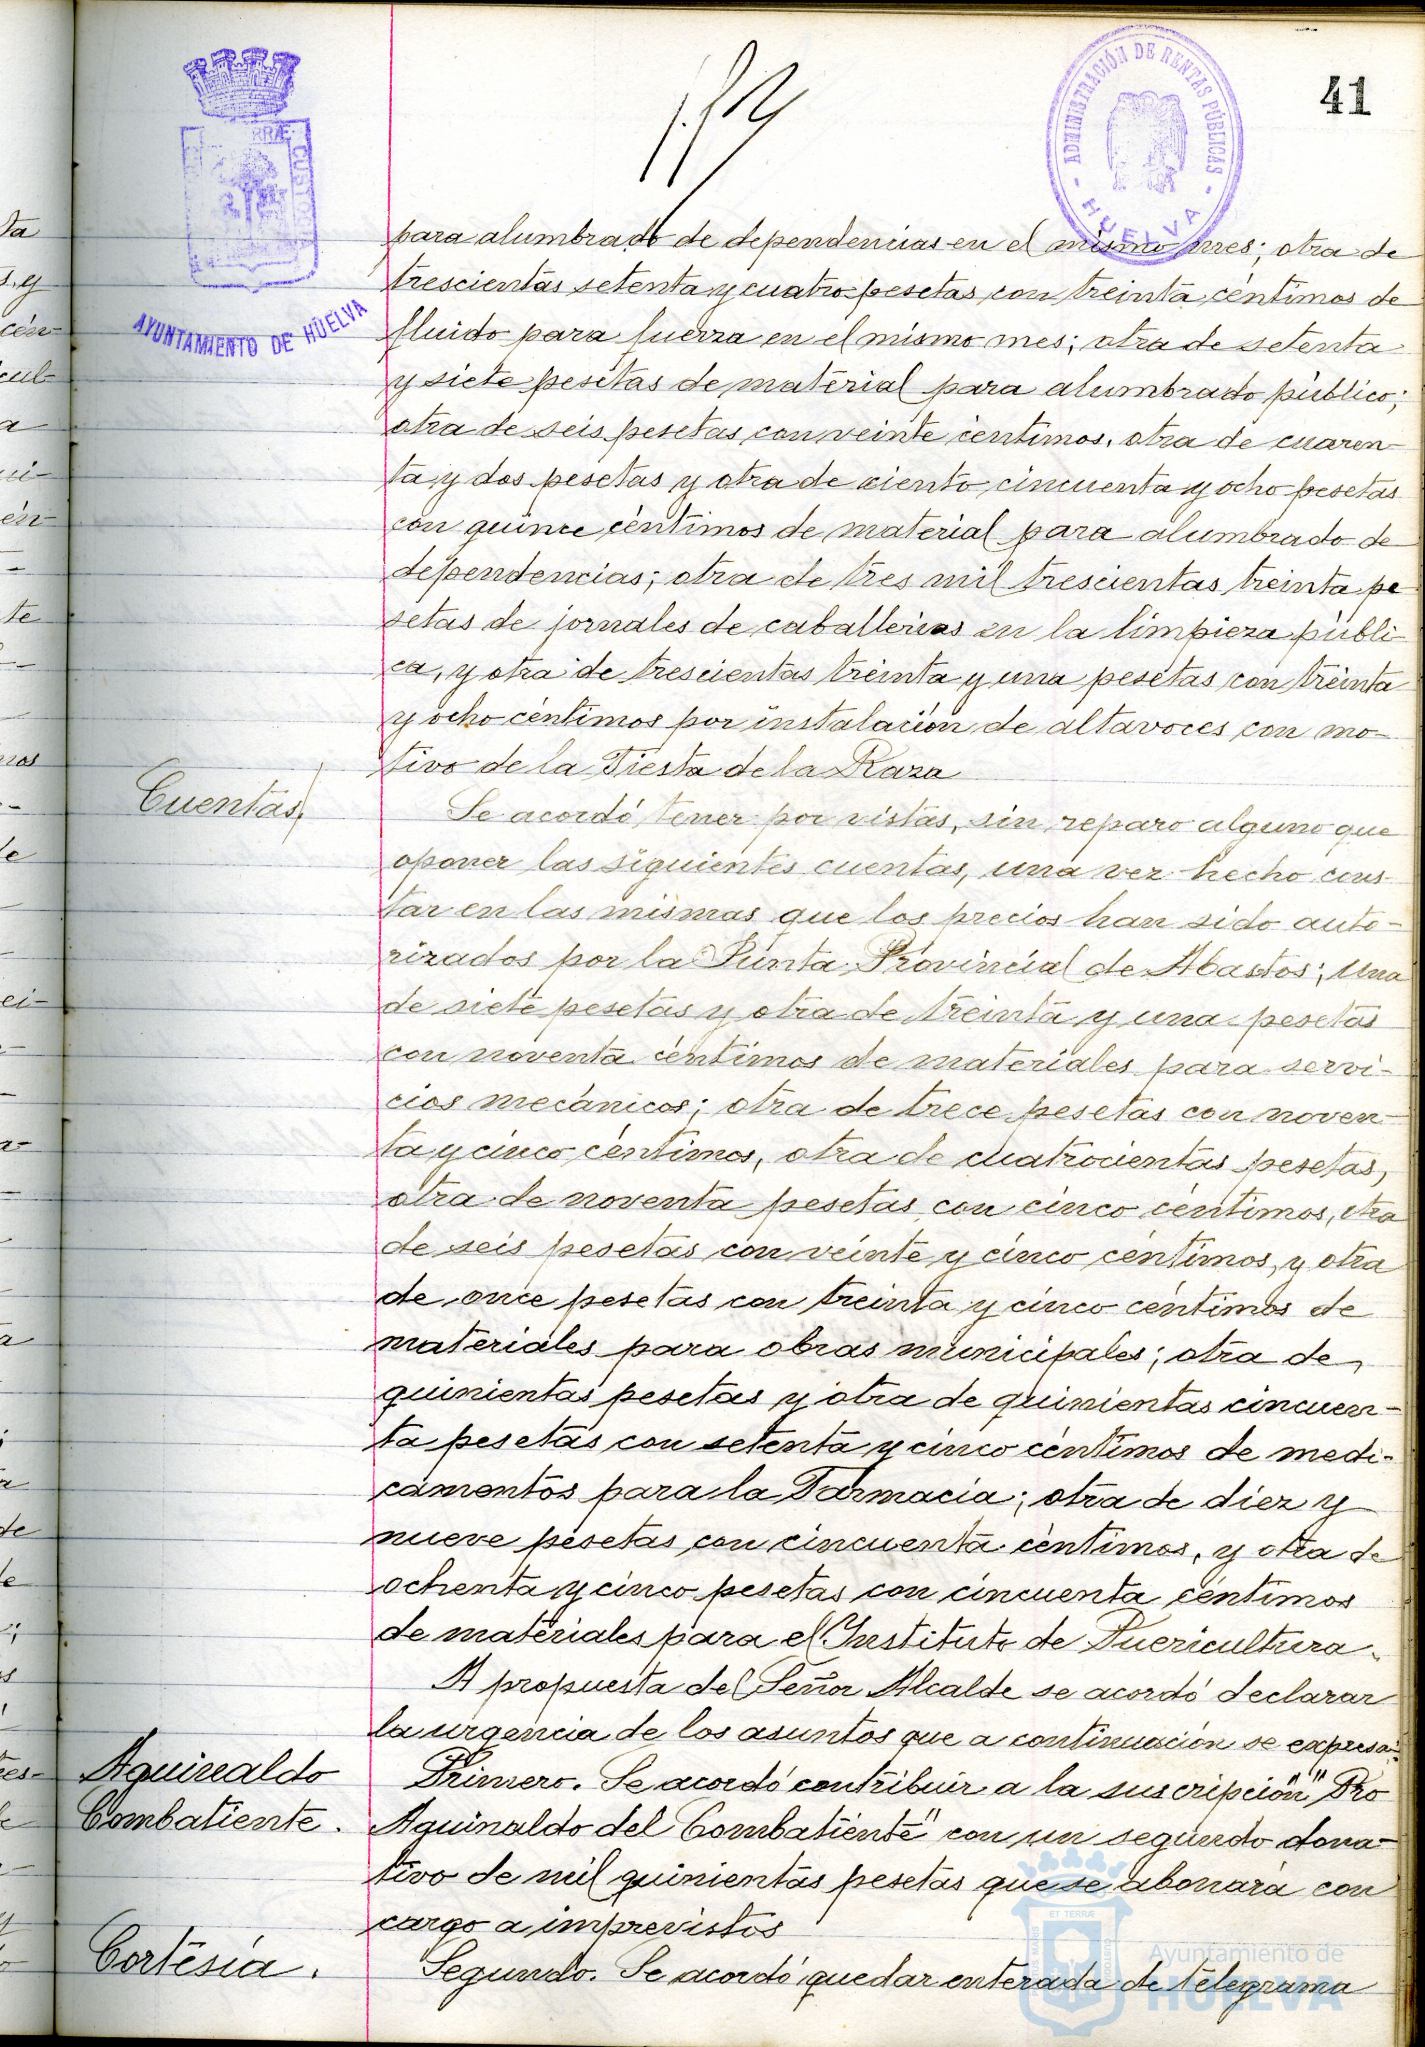 41
ADMINISTRACIÓN DE RENTAS PÚBLICAS
HUELVA
AYUNTAMIENTO DE HUELVA
para alumbrado de dependencias en el mismo mes; otra de
trescientas setenta y cuatro pesetas con treinta céntimos de
fluido para fuerza en el mismo mes; otra de setenta
y siete pesetas de material para alumbrado público;
otra de seis pesetas con veinte céntimos, otra de cuaren-
ta y dos pesetas y otra de ciento cincuenta y ocho pesetas
con quince céntimos de material para alumbrado de
dependencias; otra de tres mil trescientas treinta pe
setas de jornales de caballerias en la limpieza públi
ca, y otra de trescientas treinta y una pesetas con treinta
y ocho céntimos por instalación de altavoces con mo-
tivo de la Fiesta de la Raza
Cuentas
Se acordó tener por vistas, sin reparo alguno que
oponer las siguientes cuentas, una vez hecho cons
tar en las mismas que los precios han sido auto-
rizados por la Junta Provincial de Abastos; Una
de siete pesetas y otra de treinta y una pesetas
con noventa céntimos de materiales para servi-
cios mecánicos; otra de trece pesetas con noven-
ta y cinco céntimos, otra de cuatrocientas pesetas,
otra de noventa pesetas con cinco céntimos, otra
de seis pesetas con veinte y cinco céntimos, y otra
de once pesetas con treinta y cinco céntimos de
materiales para obras municipales; otra de
quinientas pesetas y otra de quinientas cincuen-
ta pesetas con setenta y cinco céntimos de medi-
camentos para la Farmacia; otra de diez y
nueve pesetas con cincuenta céntimos, y otra de
ochenta y cinco pesetas con cincuenta céntimos
de materiales para el Instituto de Puericultura.
A propuesta del Señor Alcalde se acordó declarar
la urgencia de los asuntos que a continuación se expresa:
Aguinaldo
Combatiente.
Primero. Se acordó contribuir a la suscripción "Pro
Aguinaldo del Combatiente" con un segundo dona-
tivo de mil quinientas pesetas que se abonará con
cargo a imprevistos
Cortesía.
Segundo. Se acordó quedar enterada de telegrama
Ayuntamiento de
HUELVA